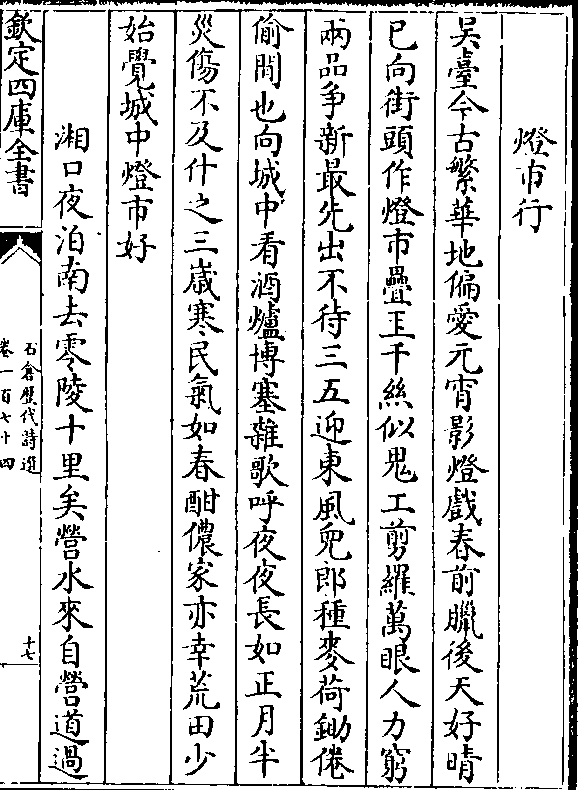 燈市行
吴臺今古繁華地偏愛元宵影燈戲春前臘後天好晴
已向街頭作燈市疊玉千絲似鬼工剪羅萬眼人力窮
兩品争新最先出不待三五迎東風兒郎種麥荷鋤倦
偷閒也向城中看酒爐博塞雜歌呼夜夜長如正月半
災傷不及什之三嵗寒民氣如春酣儂家亦幸荒田少
始覺城中燈市好
湘口夜泊南去零陵十里矣營水來自營道過
欽定四庫全書
石倉歴代詩選
卷一百七十四
十七